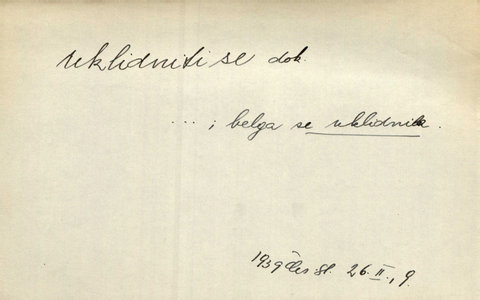 uklidniti se dok.
... i belga se uklidnila.
1939 Čes sl. 26.II., 9.